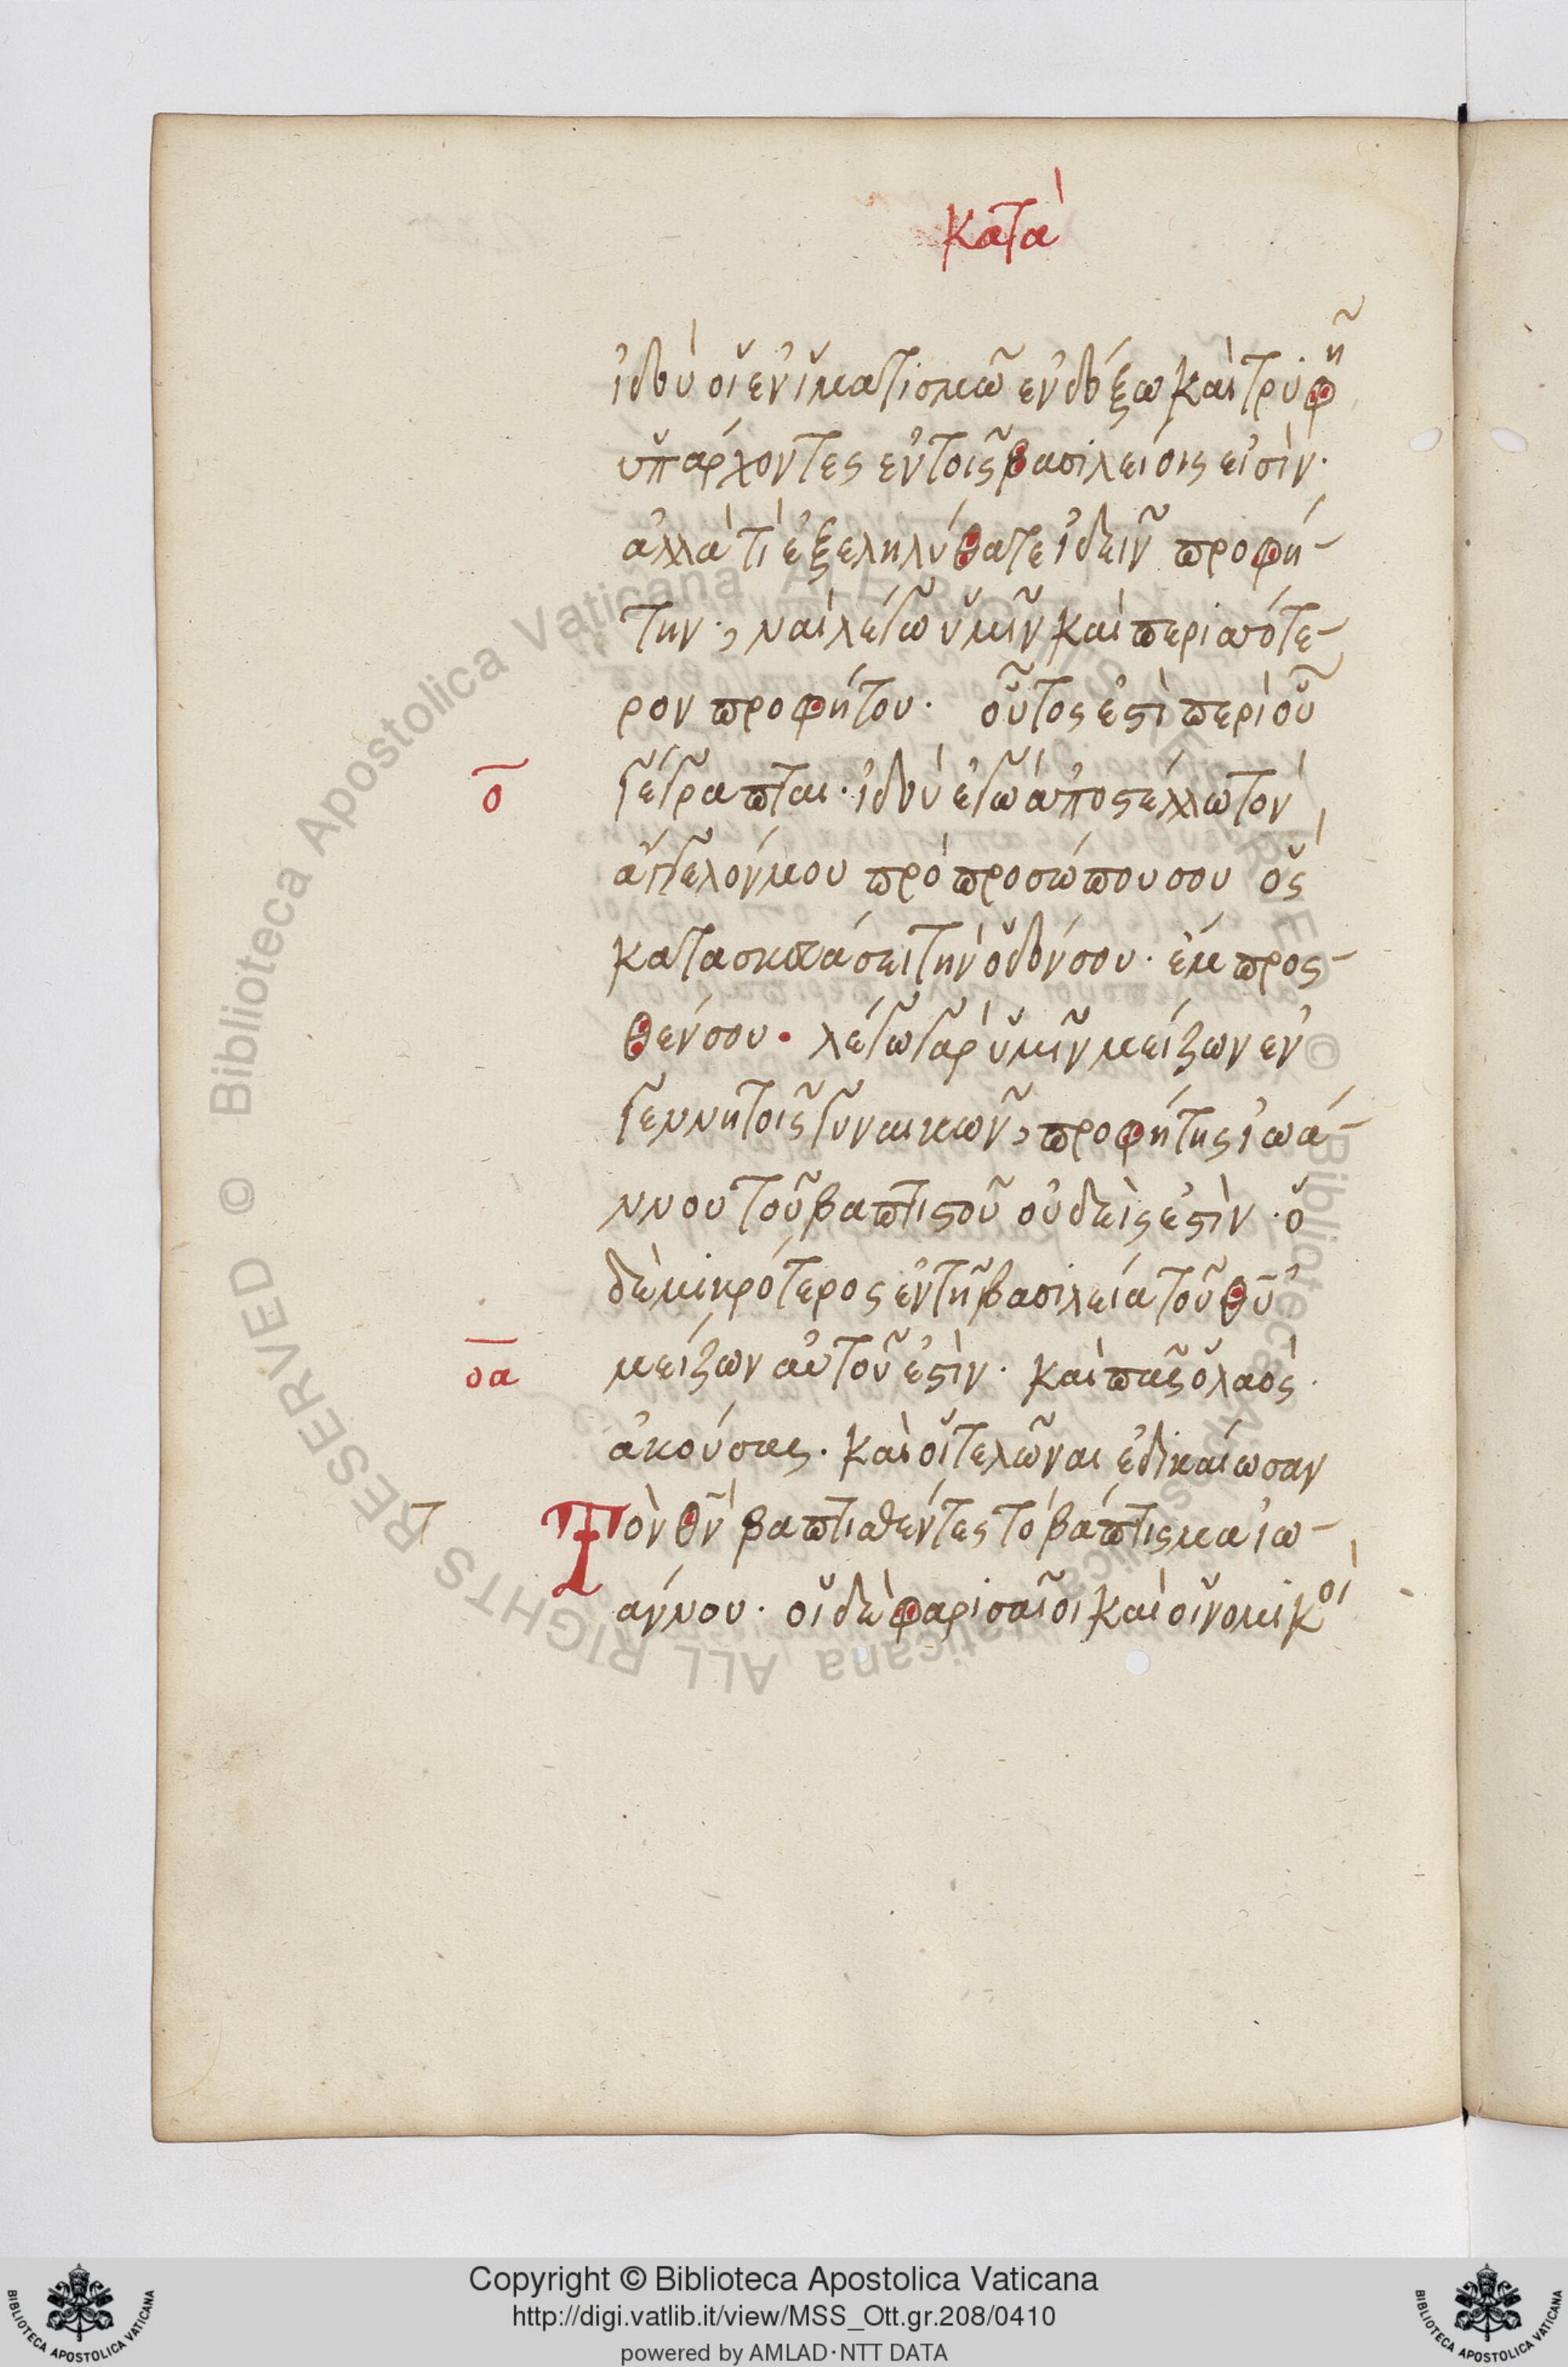 κατὰ
ἰδοὺ οἱ ἐν ἱματισμῶ ἐνδόξω καὶ τρυφῆ
ὑπάρχοντες ἐν τοῖς βασιλείοις εἰσίν·
ἀλλὰ τί ἐξεληλύθατε ἰδεῖν προφή-
την·, ναὶ λέγω ὑμῖν καὶ περισσότε-
ρον προφήτου· οὗτός ἐστὶ περὶ οὗ
ο γέγραπται· ἰδοὺ ἐγὼ ἀποστέλλω τὸν
ἄγγελόν μου πρὸ προσώπου σου ὃς
κατασκευάσει τὴν ὁδόν σου· ἔμπροσ-
θέν σου· λέγω γὰρ ὑμῖν μείζων ἐν
γεννητοῖς γυναικῶν, προφήτης ἰωά-
ννου τοῦ βαπτιστοῦ οὐδείς ἐστὶν· ὁ
δὲ μικρότερος ἐν τῆ βασιλεία τοῦ θῦ
οα μείζων αὐτοῦ ἐστὶν· καὶ πᾶς ὁ λαὸς·
ἀκούσας· καὶ οἱ τελῶναι ἐδικαίωσαν
τ Τὸν θν̄ βαπτισθέντες τὸ βάπτισμα ἰω-
άννου· οἱ δὲ φαρισαῖοι καὶ οἱ νομικοὶ
Copyright © Biblioteca Apostolica Vaticana
http://digi.vatlib.it/view/MSS_Ott.gr.208/0410
powered by AMLAD·NTT DATA
BIBLIOTECA APOSTOLICA VATICANA
BIBLIOTECA APOSTOLICA VATICANA
© Biblioteca Apostolica Vaticana ALL RIGHTS RESERVED © Biblioteca Apostolica Vaticana ALL RIGHTS RESERVED